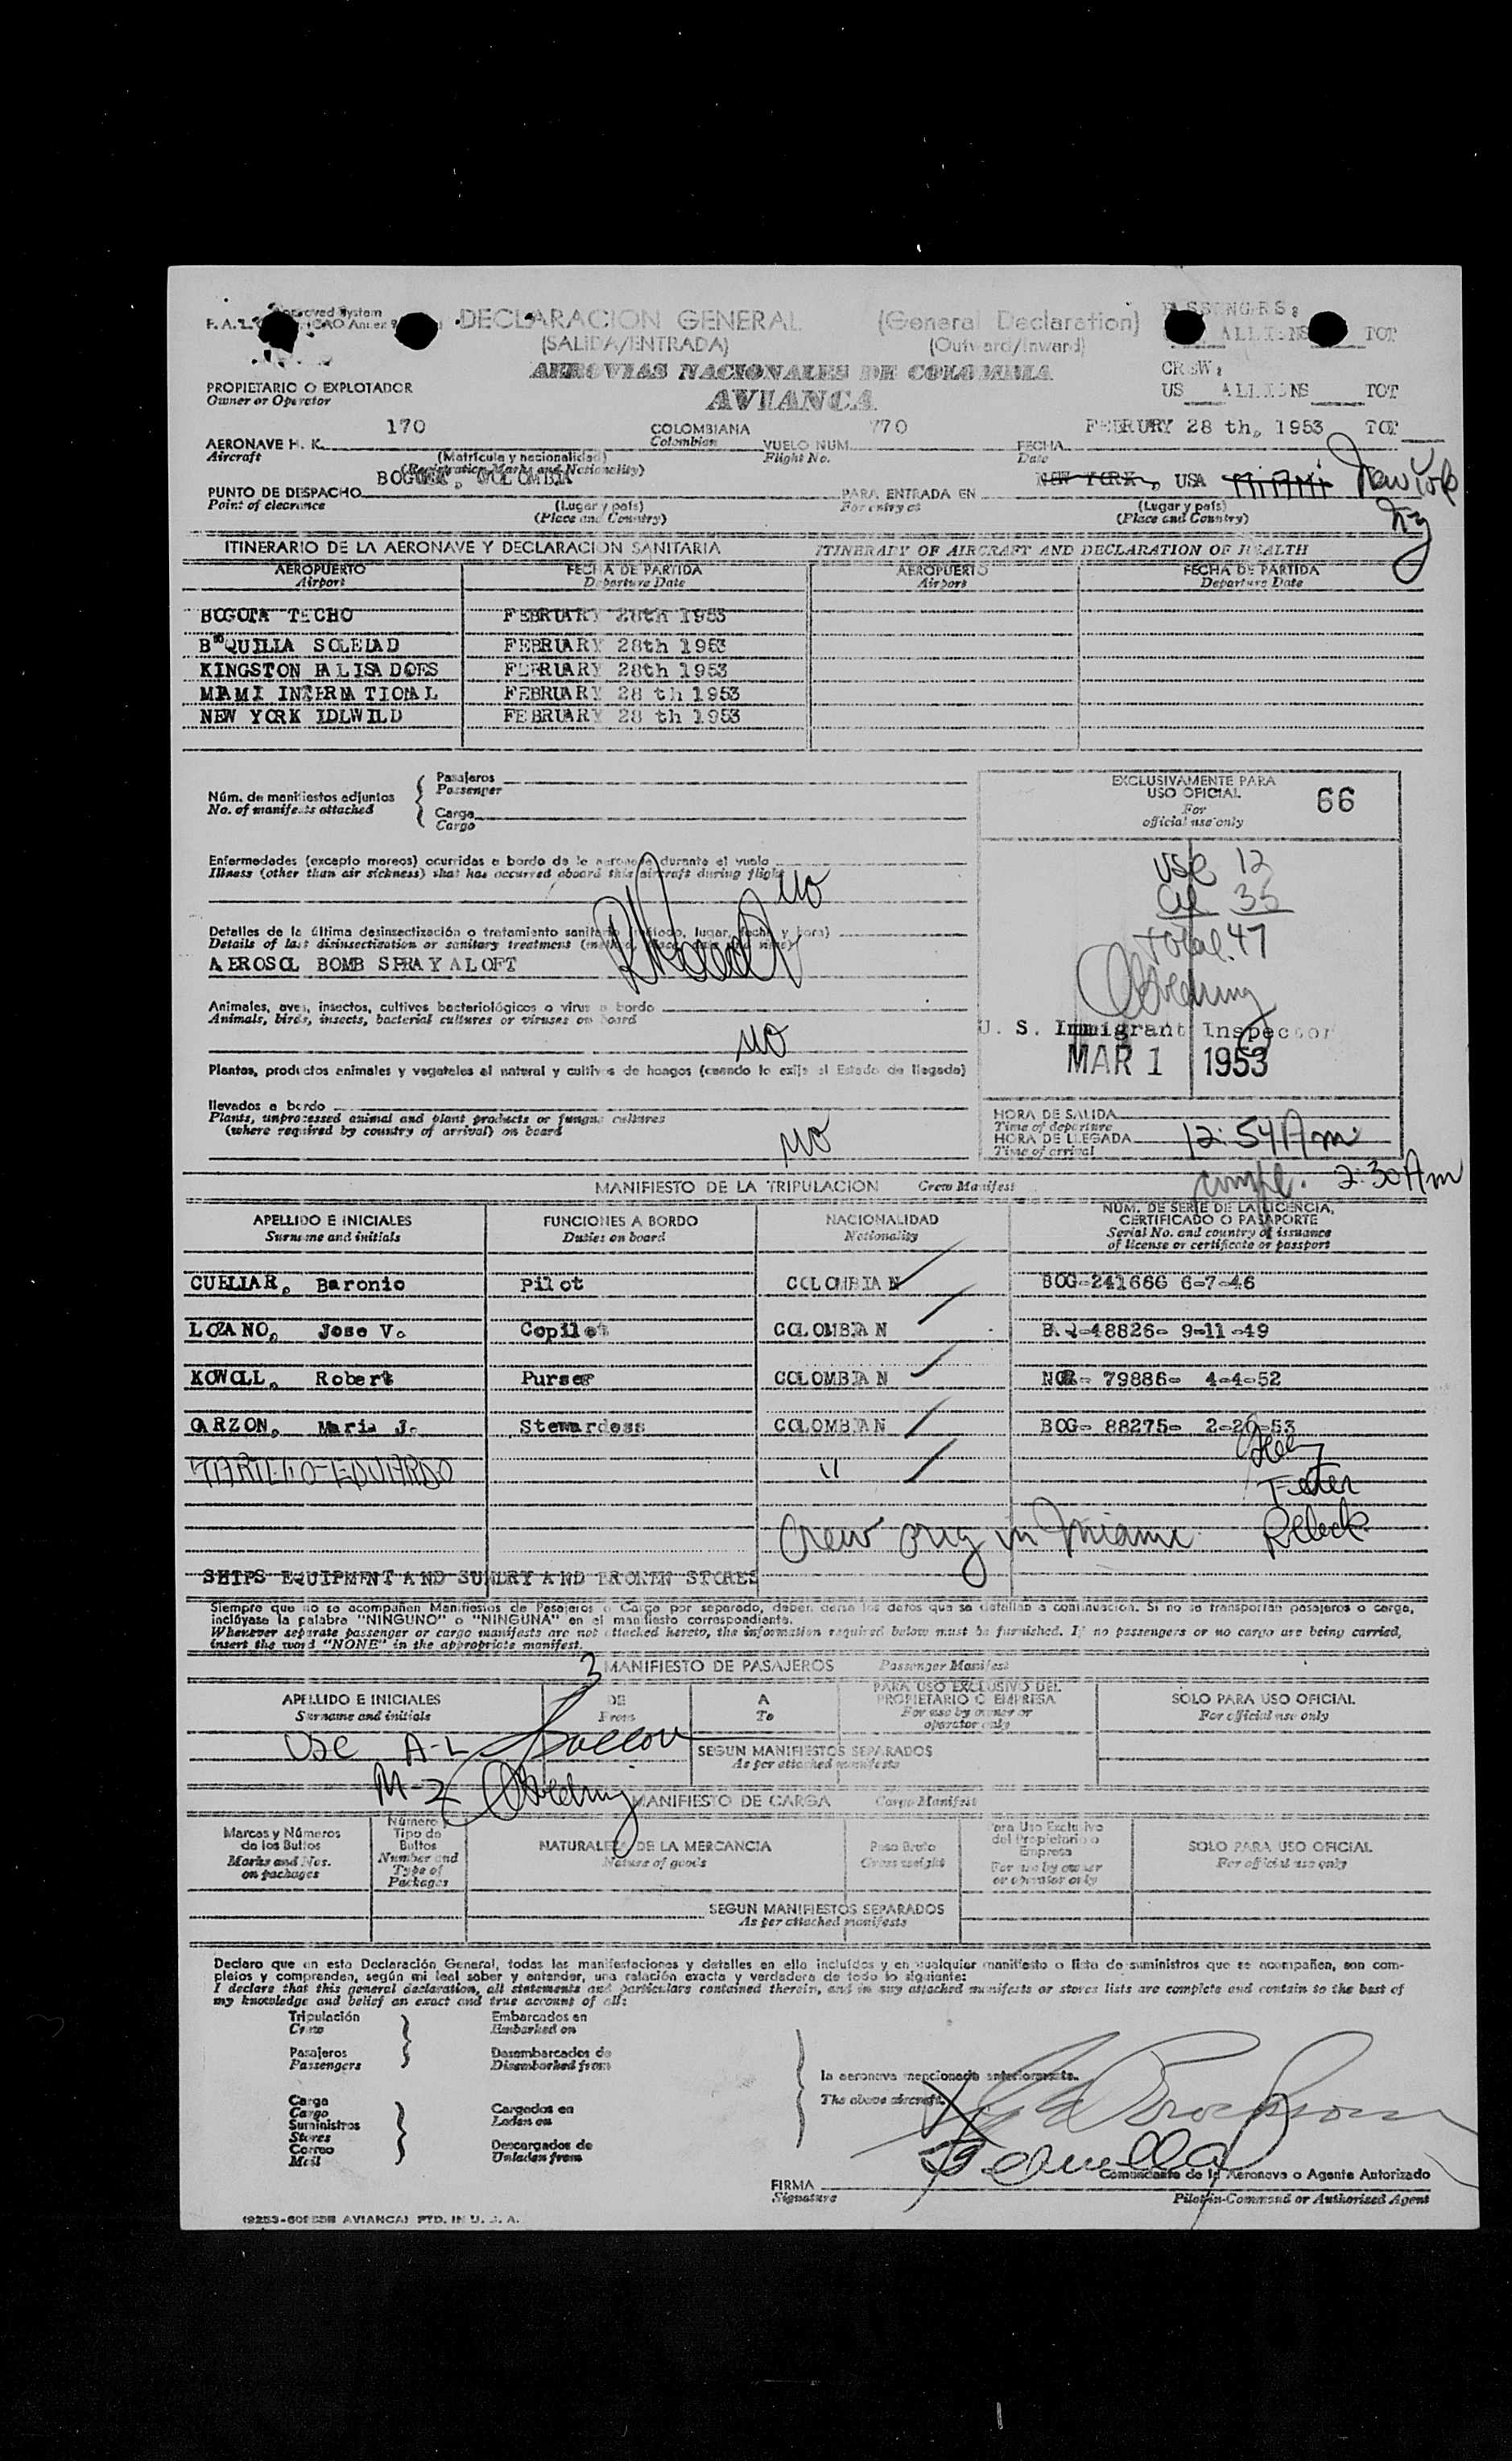 DECLARACION GENERAL (General Declaration)
(SALIDA/ENTRADA) (Outward/Inward)
AEROVIAS NACIONALES DE COLOMBIA
AVIANCA
PASSENGERS:
ALLIENS TOT
CREW:
US ALLIENS TOT
PROPIETARIO O EXPLOTADOR
Owner or Operator
170 COLOMBIANA 770 FEBRURY 28 th, 1953 TOT
AERONAVE H. K. Colombian VUELO NUM. FECHA
Aircraft (Matrícula y nacionalidad) Flight No. Date
(Registration Marks and Nationality)
BOGOTA, COLOMBIA NEW YORK, USA MIAMI New York
PUNTO DE DESPACHO PARA ENTRADA EN NY
Point of clearance (Lugar y país) For entry at (Lugar y país)
(Place and Country) (Place and Country)
ITINERARIO DE LA AERONAVE Y DECLARACION SANITARIA ITINERARY OF AIRCRAFT AND DECLARATION OF HEALTH
AEROPUERTO FECHA DE PARTIDA AEROPUERTO FECHA DE PARTIDA
Airport Departure Date Airport Departure Date
BOGOTA TECHO FEBRUARY 28th 1953
B"QUILLA SOLEDAD FEBRUARY 28th 1953
KINGSTON PALISADOES FEBRUARY 28th 1953
MIAMI INTERNATIONAL FEBRUARY 28 th 1953
NEW YORK IDLWILD FEBRUARY 28 th 1953
Núm. de manifiestos adjuntos
No. of manifests attached
Pasajeros
Passenger
Carga
Cargo
EXCLUSIVAMENTE PARA
USO OFICIAL
For
official use only
66
Enfermedades (excepto mareos) ocurridas a bordo de la aeronave durante el vuelo
Illness (other than air sickness) that has occurred aboard this aircraft during flight
NO
USC 12
Total 47
Detalles de la última desinsectización o tratamiento sanitario (método, lugar, fecha y hora)
Details of last disinsectisation or sanitary treatment (method, place, date and time)
AEROSOL BOMB SPRAY ALOFT
Animales, aves, insectos, cultivos bacteriológicos o virus a bordo
Animals, birds, insects, bacterial cultures or viruses on board
NO
U. S. Immigrant Inspector
MAR 1 1953
Plantas, productos animales y vegetales al natural y cultivos de hongos (cuando lo exija el Estado de llegada)
llevados a bordo
Plants, unprocessed animal and plant products or fungus cultures
(where required by country of arrival) on board
NO
HORA DE SALIDA
Time of departure
HORA DE LLEGADA 12:54 Am
Time of arrival
Compl. 2:30 Am
MANIFIESTO DE LA TRIPULACION Crew Manifest
APELLIDO E INICIALES FUNCIONES A BORDO NACIONALIDAD NUM. DE SERIE DE LA LICENCIA, CERTIFICADO O PASAPORTE
Surname and initials Duties on board Nationality Serial No. and country of issuance of license or certificate or passport
CUELLAR, Baronio Pilot COLOMBIAN BOG-241666 6-7-46
LOZANO, Jose V. Copilot COLOMBIAN B.Q-48826- 9-11-49
KOWOLL, Robert Purser COLOMBIAN 79886- 4-4-52
GARZON, Maria J. Stewardess COLOMBIAN BOG- 88275- 2-26-53
EDUARDO "
Crew orig in Miami
SHIPS EQUIPMENT AND SUNDRY AND BROKEN STORES
Siempre que no se acompañen Manifiestos de Pasajeros o Carga por separado, deben darse los datos que se detallan a continuación. Si no se transportan pasajeros o carga,
inclúyase la palabra "NINGUNO" o "NINGUNA" en el manifiesto correspondiente.
Whenever separate passenger or cargo manifests are not attached hereto, the information required below must be furnished. If no passengers or no cargo are being carried,
insert the word "NONE" in the appropriate manifest.
3 MANIFIESTO DE PASAJEROS Passenger Manifest
APELLIDO E INICIALES DE A PARA USO EXCLUSIVO DEL PROPIETARIO O EMPRESA SOLO PARA USO OFICIAL
Surname and initials From To For use by owner or operator only For official use only
USC A-L
SEGUN MANIFIESTOS SEPARADOS
As per attached manifests
M-Z
MANIFIESTO DE CARGA Cargo Manifest
Marcas y Números de los Bultos
Marks and Nos. on packages
Número y Tipo de Bultos
Number and Type of Packages
NATURALEZA DE LA MERCANCIA
Nature of goods
Peso Bruto
Gross weight
Para Uso Exclusivo del Propietario o Empresa
For use by owner or operator only
SOLO PARA USO OFICIAL
For official use only
SEGUN MANIFIESTOS SEPARADOS
As per attached manifests
Declaro que en esta Declaración General, todas las manifestaciones y detalles en ella incluídos y en cualquier manifiesto o lista de suministros que se acompañen, son com-
pletos y comprenden, según mi leal saber y entender, una relación exacta y verdadera de todo lo siguiente:
I declare that this general declaration, all statements and particulars contained therein, and in any attached manifests or stores lists are complete and contain to the best of
my knowledge and belief an exact and true account of all:
Tripulación Embarcados en
Crew Embarked on
Pasajeros Desembarcados de
Passengers Disembarked from
la aeronave mencionada anteriormente.
The above aircraft.
Carga
Cargo Cargados en
Suministros Laden on
Stores
Correo Descargados de
Mail Unladen from
FIRMA Comandante de la Aeronave o Agente Autorizado
Signature Pilot-in-Command or Authorized Agent
AVIANCA) PTD. IN U. S. A.